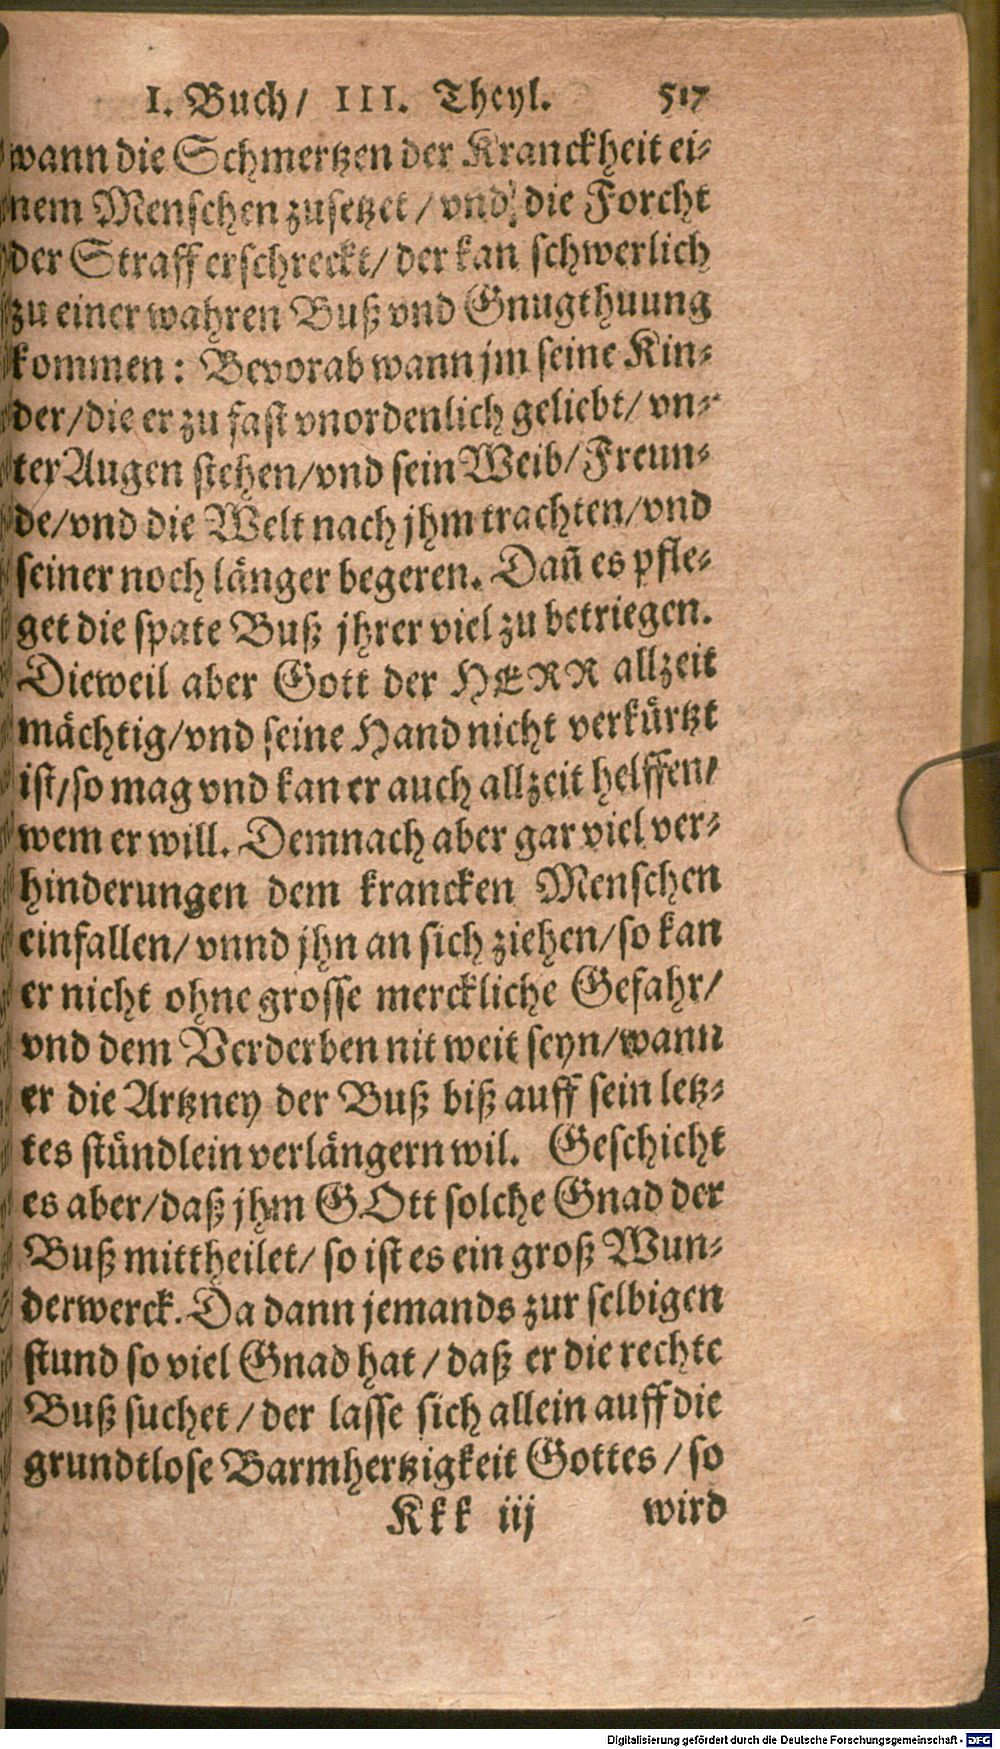 I. Buch/ III. Theyl. 517
wann die Schmertzen der Kranckheit ei-
nem Menschen zusetzet / vnd die Forcht
der Straff erschreckt/ der kan schwerlich
zu einer wahren Buß vnd Gnugthuung
kommen: Bevorab wann jm seine Kin-
der/die er zu fast vnordenlich geliebt/ vn-
ter Augen stehen/vnd sein Weib/ Freun-
de/vnd die Welt nach jhm trachten/vnd
seiner noch länger begeren. Dañ es pfle-
get die spate Buß jhrer viel zu betriegen.
Dieweil aber Gott der HERR allzeit
mächtig/vnd seine Hand nicht verkürtzt
ist/so mag vnd kan er auch allzeit helffen/
wem er will. Demnach aber gar viel ver-
hinderungen dem krancken Menschen
einfallen/ vnnd jhn an sich ziehen/so kan
er nicht ohne grosse merckliche Gefahr/
vnd dem Verderben nit weit seyn/wann
er die Artzney der Buß biß auff sein letz-
tes stündlein verlängern wil. Geschicht
es aber/daß jhm GOtt solche Gnad der
Buß mittheilet/ so ist es ein groß Wun-
derwerck. Da dann jemands zur selbigen
stund so viel Gnad hat / daß er die rechte
Buß suchet / der lasse sich allein auff die
grundtlose Barmhertzigkeit Gottes / so
Kkk iij wird
Digitalisierung gefördert durch die Deutsche Forschungsgemeinschaft - DFG